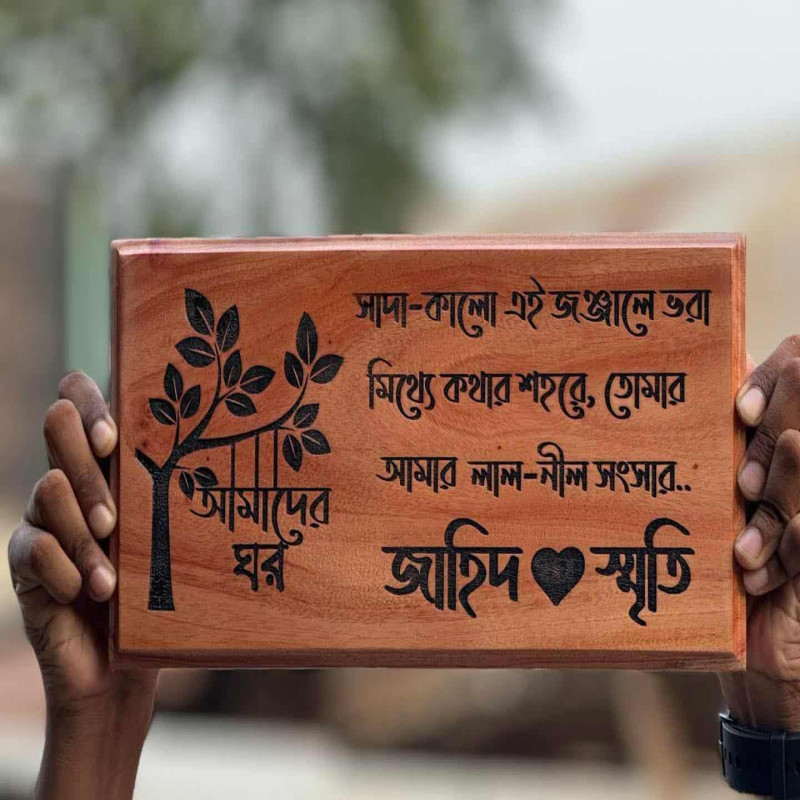 আমাদের
ঘর
সাদা-কালো এই জঞ্জালে ভরা
মিথ্যে কথার শহরে, তোমার
আমার লাল-নীল সংসার..
জাহিদ ♥ স্মৃতি